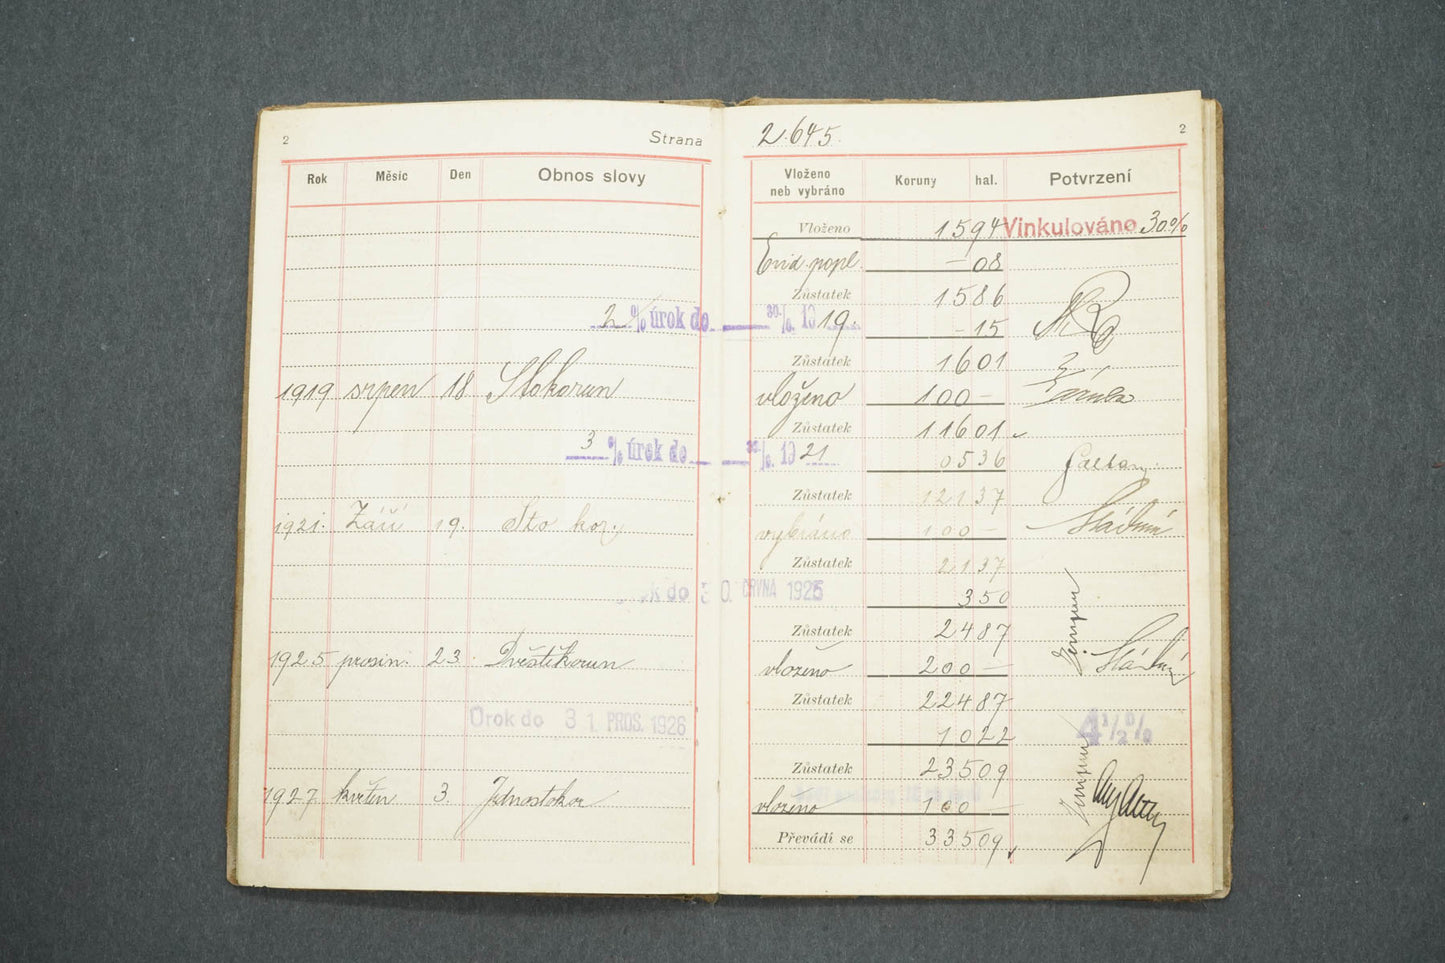 2 Strana 2.645. 2
Rok Měsíc Den Obnos slovy Vloženo neb vybráno Koruny hal. Potvrzení
Vloženo 15 94 Vinkulováno 30%
Evid. popl. - 08
Zůstatek 15 86
2 % úrok do 30./6. 1919. - 15
Zůstatek 16 01
1919 srpen 18 Stokorun vloženo 100 -
Zůstatek 116 01
3 % úrok do 30./6. 1921 05 36
Zůstatek 121 37
1921. Září 19. Sto kor. vybráno 100 -
Zůstatek 21 37
úrok do 30. ČRVNA 1925 3 50
Zůstatek 24 87
1925 prosin. 23. Dvěstěkorun vloženo 200 -
Zůstatek 224 87
Úrok do 31. PROS. 1926 10 22 4 1/2 %
Zůstatek 235 09
1927 květen 3. Jednostokor vloženo 100 -
Převádí se 335 09